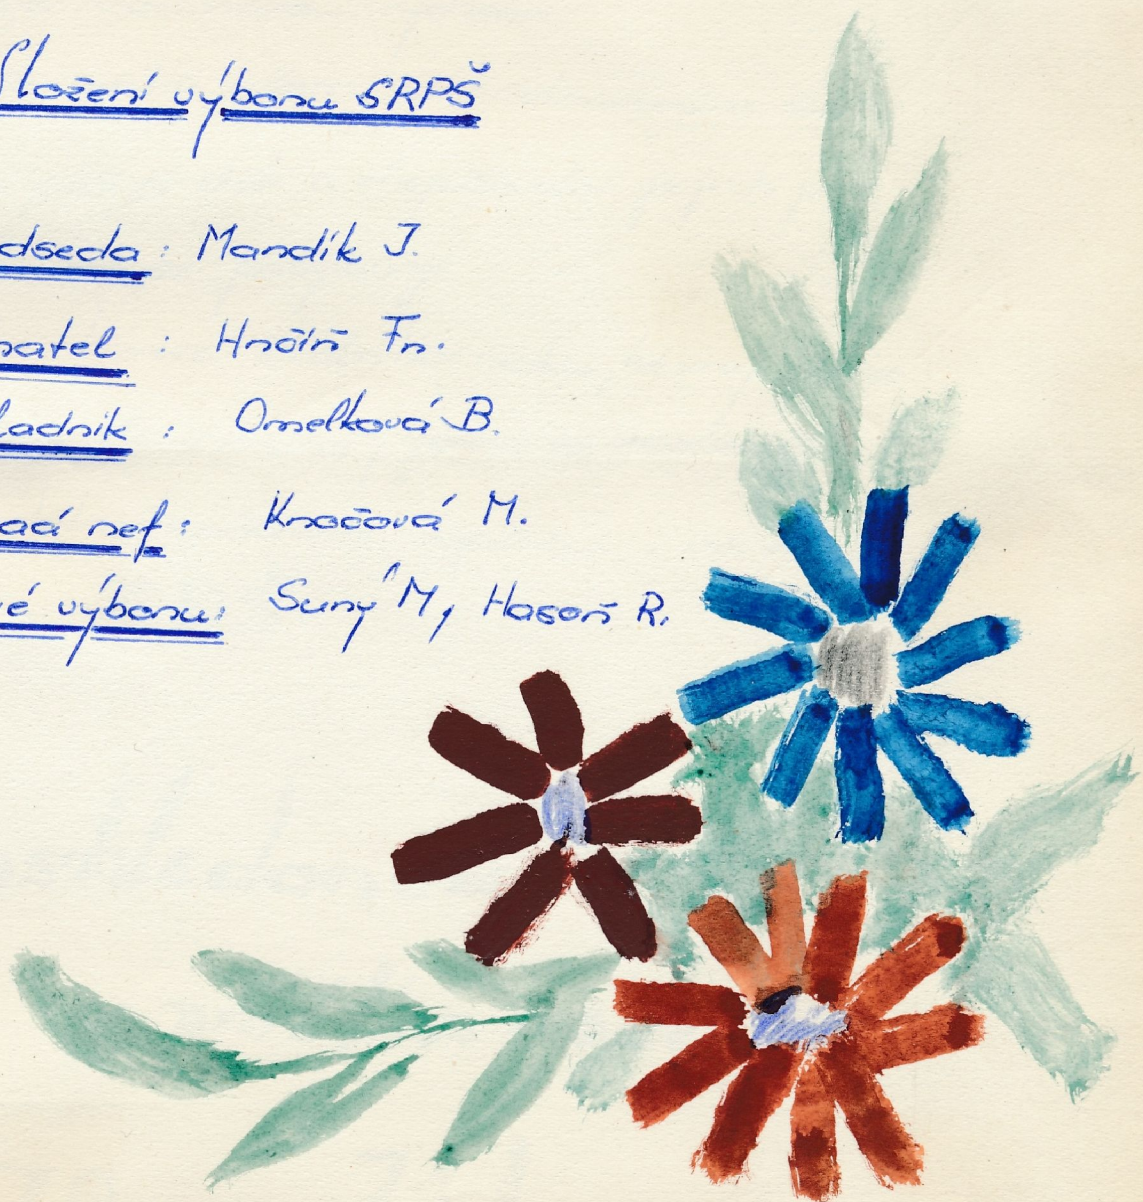 Složení výboru SRPŠ
dseda : Mandík J.
natel : Hrčíř Fr.
ladník : Omelková B.
ací ref : Kračová M.
é výboru: Surý M, Hasoň R.